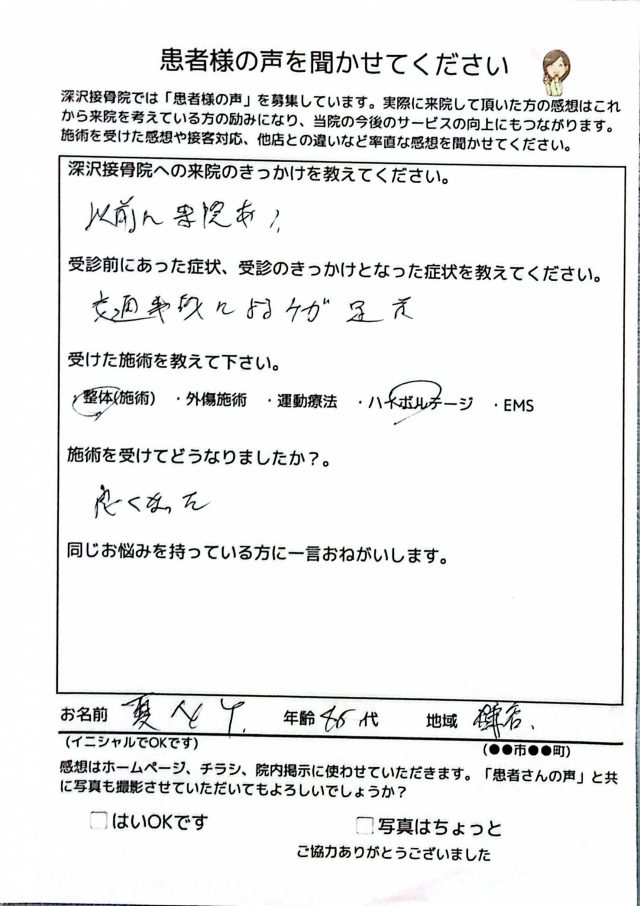 患者様の声を聞かせてください
深沢接骨院では「患者様の声」を募集しています。実際に来院して頂いた方の感想はこれ
から来院を考えている方の励みになり、当院の今後のサービスの向上にもつながります。
施術を受けた感想や接客対応、他店との違いなど率直な感想を聞かせてください。
深沢接骨院への来院のきっかけを教えてください。
以前に来院あり
受診前にあった症状、受診のきっかけとなった症状を教えてください。
交通事故によるケガ 足
受けた施術を教えて下さい。
・整体(施術) ・外傷施術 ・運動療法 ・ハイボルテージ ・EMS
施術を受けてどうなりましたか?。
良くなった
同じお悩みを持っている方に一言おねがいします。
お名前 年齢 代 地域 鎌倉
(イニシャルでOKです) (●●市●●町)
感想はホームページ、チラシ、院内掲示に使わせていただきます。「患者さんの声」と共
に写真も撮影させていただいてもよろしいでしょうか?
はいOKです 写真はちょっと
ご協力ありがとうございました